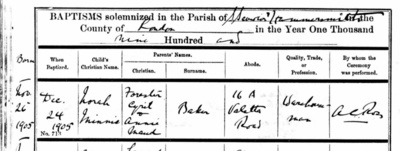 BAPTISMS solemnized in the Parish of
in the
County of London in the Year One Thousand
nine Hundred and
Born
When Baptized.
Child's Christian Name.
Parents' Names.
Christian.
Surname.
Abode.
Quality, Trade, or Profession.
By whom the Ceremony was performed.
Nov 26 1905
Dec. 24 1905
No.
Norah Minnie
Forester Cyril & Annie Maud
Baker
16 A
Road
Warehouseman